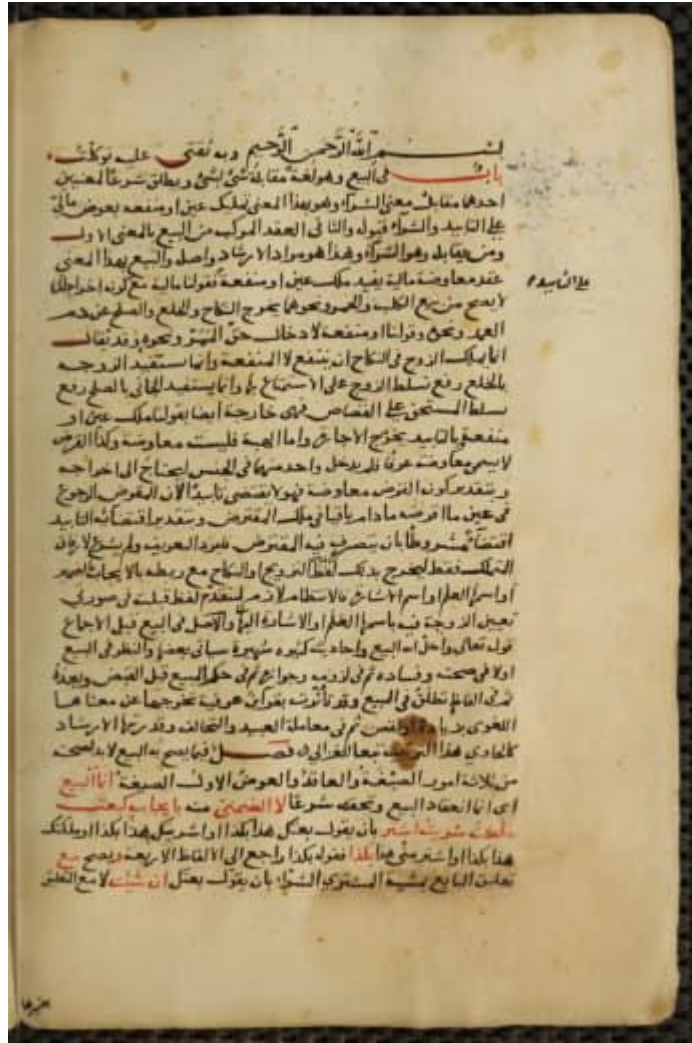 بسم الله الرحمن الرحيم وبه ثقتي عليه توكلت
باب في البيع وهو لغة مقابلة شئ بشئ ويطلق شرعا لمعنيين
احدهما مقابل معنى الشراء وهو بهذا المعنى تمليك عين او منفعة بعوض مالي
على التابيد والشراء قبوله والثاني العقد المركب من البيع بالمعنى الاول
ومن مقابله وهو الشراء وهذا هو مراد الارشاد واصله والبيع بهذا المعنى
عقد معاوضة مالية يفيد ملك عين او منفعة فقولنا مالية مع كونه اخراجا لما
على التابيد
لا يصح من بيع الكلب والخمر ونحوهما يخرج النكاح والخلع والصلح عن دم
العمد ونحوه وقولنا او منفعة لادخال حق الممر ونحوه وقد يقال
انما يملك الزوج في النكاح ان ينتفع لا المنفعة وانما تستفيد الزوجة
بالخلع رفع تسلط الزوج على الاستمتاع بها وانما يستفيد الجاني بالصلح رفع
تسلط المستحق على القصاص فهى خارجة ايضا بقولنا ملك عين او
منفعة وبالتابيد يخرج الاجارة واما الهبة فليست معاوضة وكذا القرض
لا يسمى معاوضة عرفا فلم يدخل واحد منهما في الجنس ليحتاج الى اخراجه
وبتقدير كون القرض معاوضة فهو لا يقتضى تابيدا لان للمقرض الرجوع
في عين ما اقرضه مادام باقيا في ملك المقترض وبتقدير اقتضائه التابيد
اقتضاه مشروطا بان يتصرف فيه المقترض
التمليك فقط ليخرج بذلك لفظ التزويج والنكاح مع ربطه بالايجاب
او اسم العلم او اسم الاشارة
تعيين الزوجة فيه باسمها العلم او الاشارة اليها والاصل في البيع قبل الاجماع
قوله تعالى واحل الله البيع واحاديث كثيرة شهيرة سياتي بعضها والنظر في البيع
اولا في صحته وفساده ثم في لزومه وجوازه ثم في حكم المبيع قبل القبض وبعده
ثم في الفاظ تطلق في البيع وقد تأثرت بقرائن عرفية تخرجها عن معناها
اللغوى بزيادة او نقص ثم في معاملة العبيد والتحالف وقد رتبها الارشاد
كالحاوي هذا الترتيب تبعا للغزالي فصل فيما يصح به البيع لابد لصحته
من ثلاثة امور الصيغة والعاقد والعوض الاول الصيغة انما البيع
اى انما انعقاد البيع وتحققه شرعا لا الضمني منه بايجاب كبعت
بان يقول بعتك هذا بكذا او اشتر مني هذا بكذا او ملكتك
هذا بكذا او اشتر مني هذا بكذا فقوله بكذا راجع الى الالفاظ الاربعة ويصح مع
تعليق البايع بمشية المشتري الشراء بان يقول بعتك ان شئت لا مع التعليق